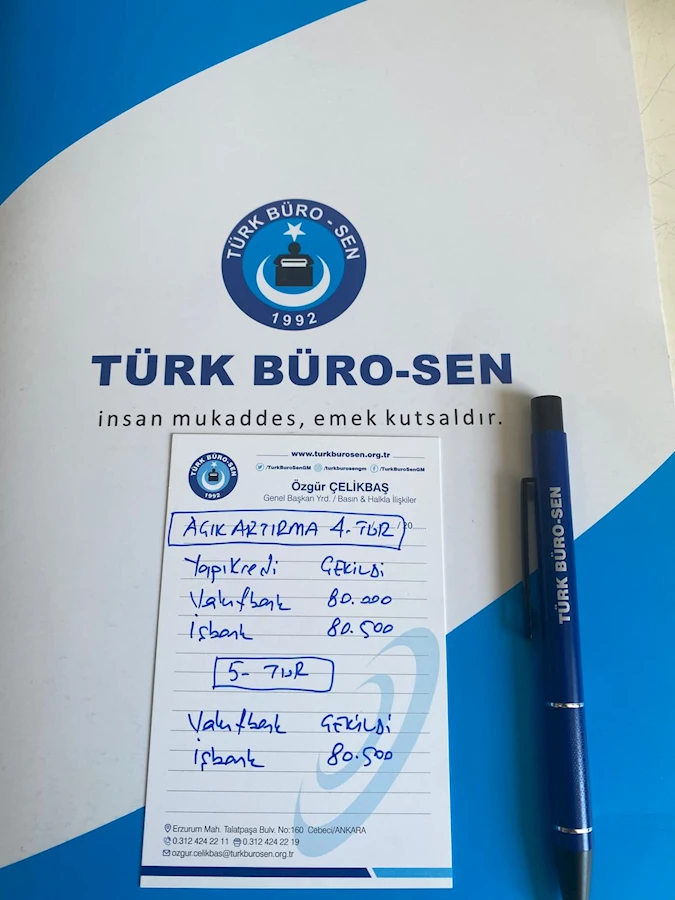 TÜRK BÜRO - SEN
1992
TÜRK BÜRO-SEN
insan mukaddes, emek kutsaldır.
www.turkburosen.org.tr
/TurkBuroSenGM /turkburosengm /TurkBuroSenGM
TÜRK BÜRO-SEN
1992
Özgür ÇELİKBAŞ
Genel Başkan Yrd. / Basın & Halkla İlişkiler
/20
AÇIK ARTIRMA 4. TUR
Yapıkredi ÇEKİLDİ
Vakıfbank 80.000
İşbank 80.500
5- TUR
Vakıfbank ÇEKİLDİ
İşbank 80.500
Erzurum Mah. Talatpaşa Bulv. No:160 Cebeci/ANKARA
0.312 424 22 11 0.312 424 22 19
ozgur.celikbas@turkburosen.org.tr
TÜRK BÜRO-SEN